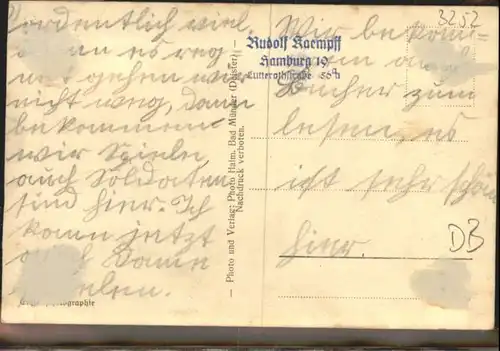 ordentlich viel.
an es reg
gehen wir
nicht weg, dann
bekommen
wir Spiele,
auch Soldaten
sind hier. Ich
kann jetzt
Dame
Photo und Verlag: Photo Halm, Bad Münder (Deister)
Nachdruck verboten.
Rudolf Kaempff
Hamburg 19
Lutterothstraße 56
3252
Wir bekom-
Bücher zum
lesen, es
ist sehr schön
hier.
DB